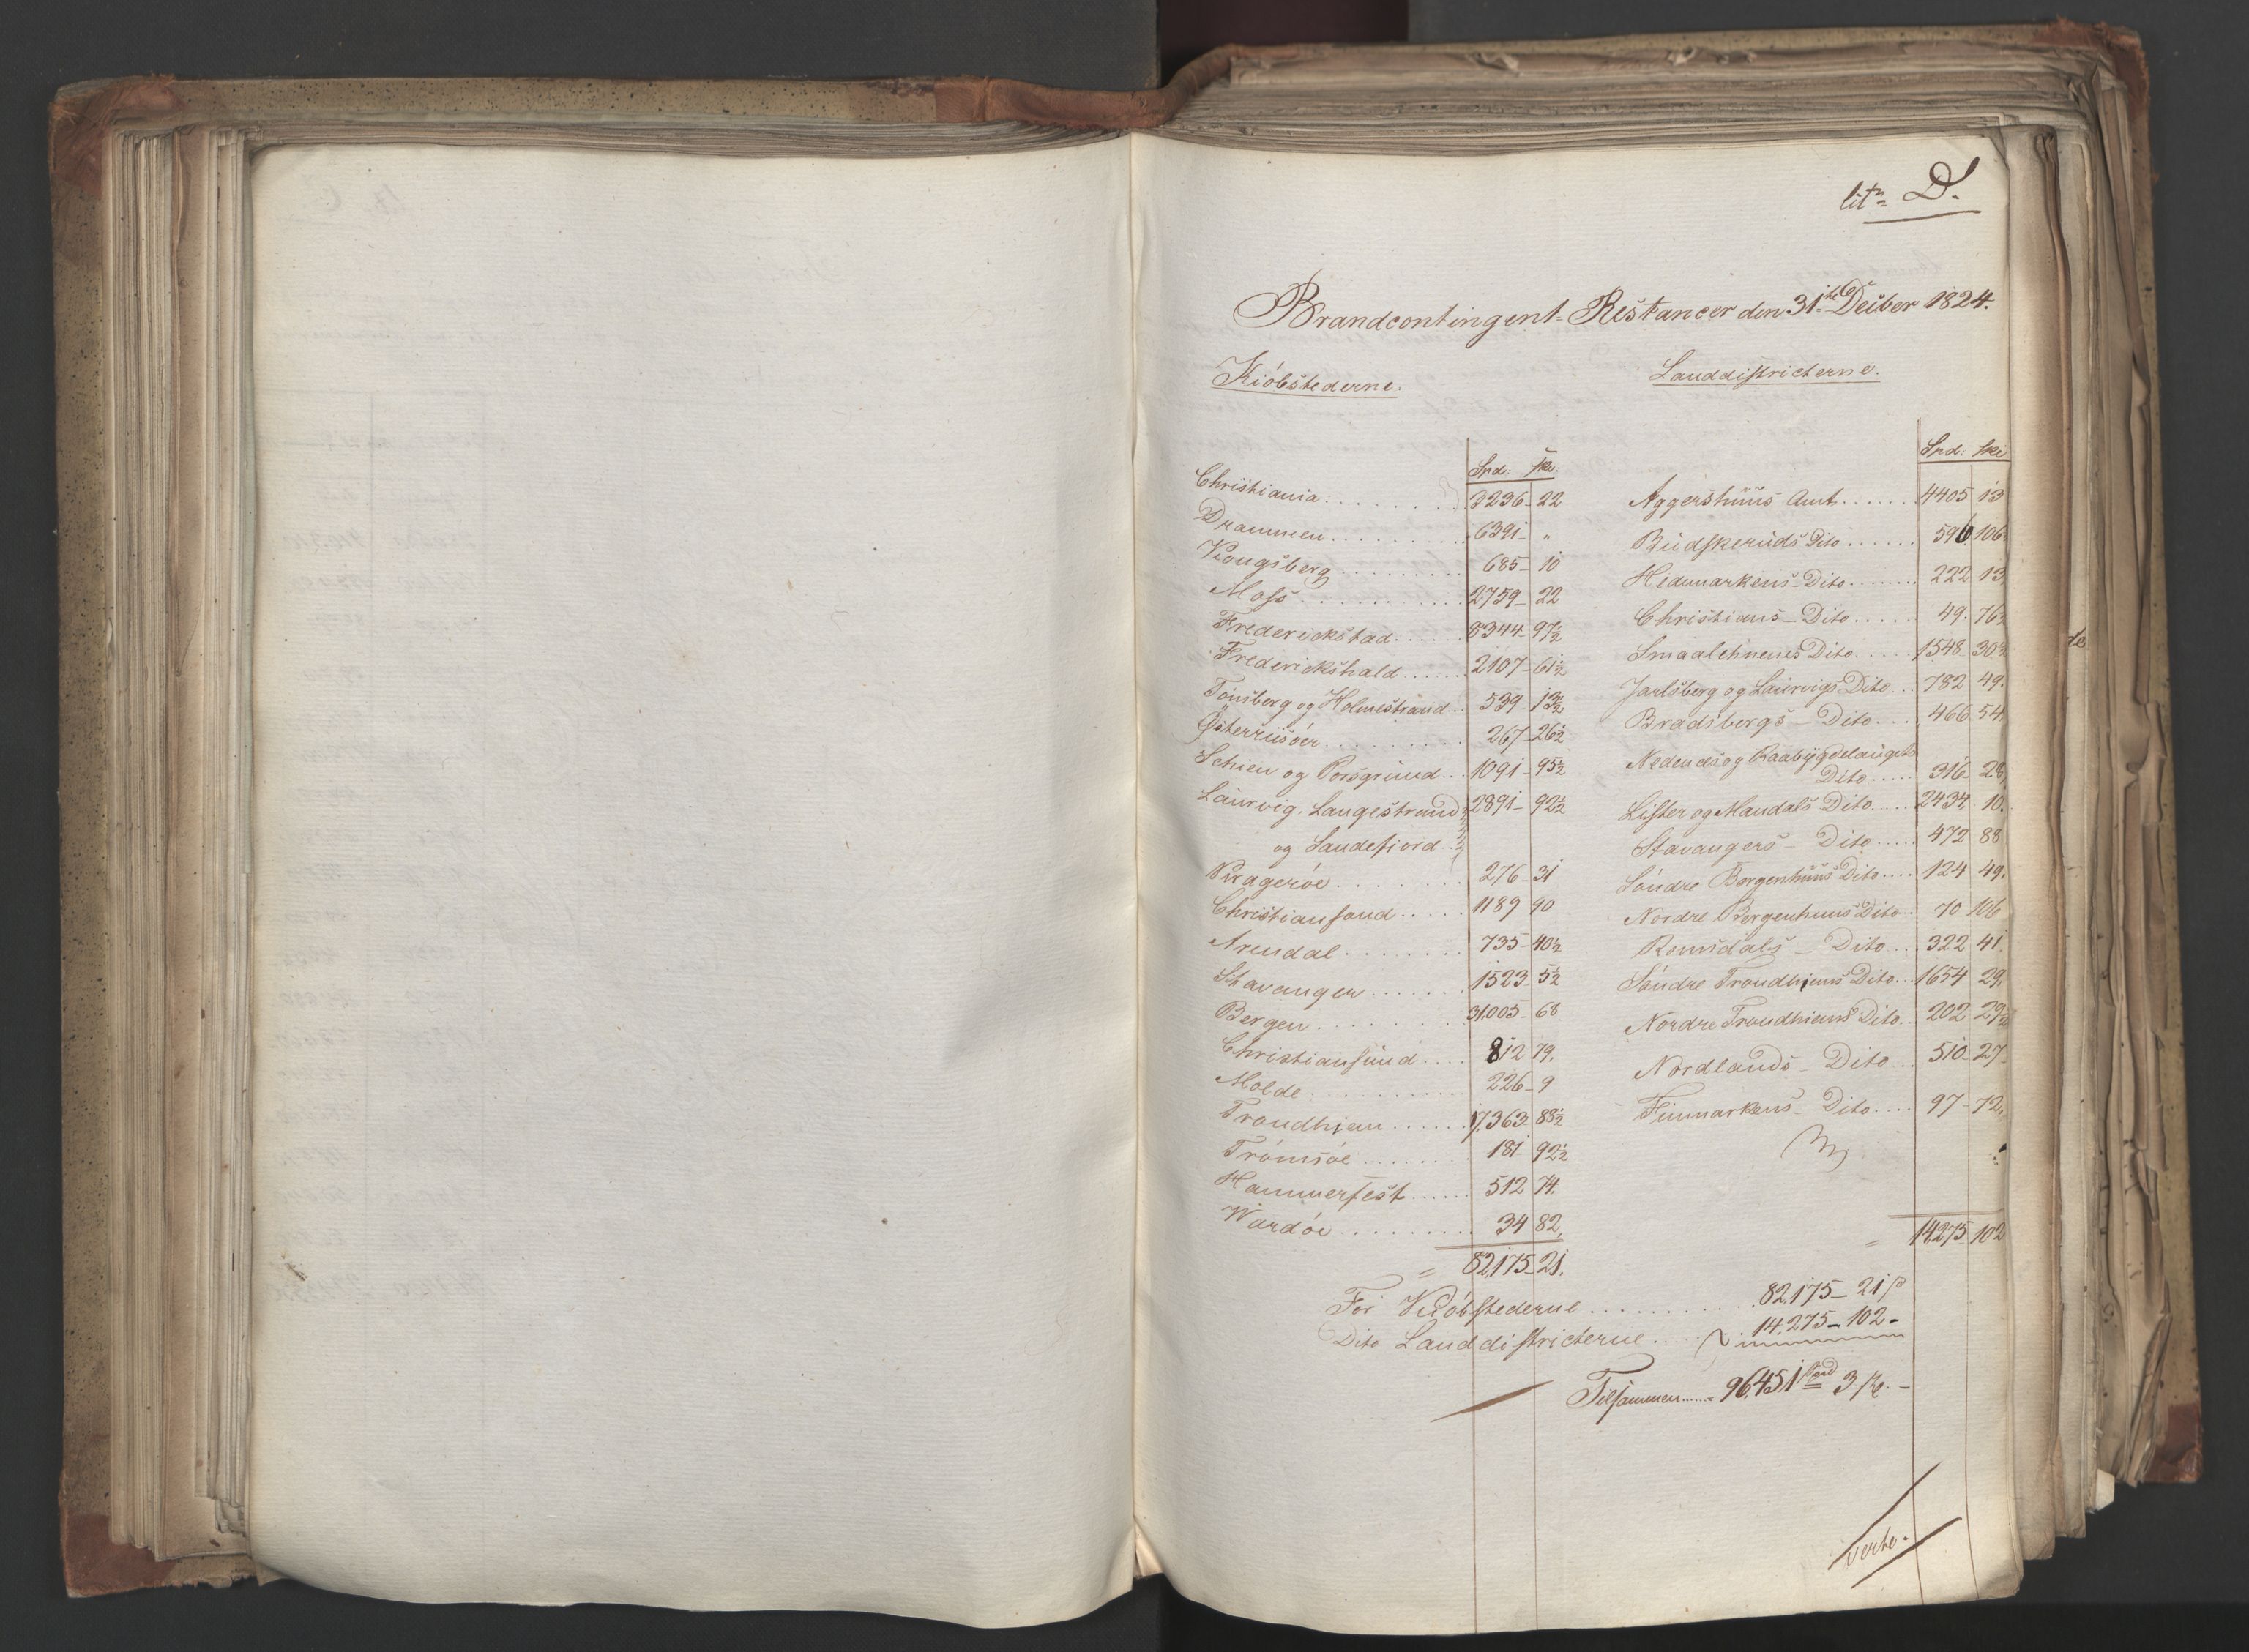 litr. D.
Brandcontingent-Restancer den 31te Decbr 1824.
Kióbstederne.
Spd: skr:
Christiania . . . . 3236 - 22
Drammen . . . . 6391 - "
Kongsberg . . . . 685 - 10
Moss . . . . 2759 - 22
Frederickstad . . . . 8344 - 97½
Frederickshald . . . . 2107 - 61½
Tönsberg og Holmestrand . . 539 - 13½
Østerriisóer . . . . 267 - 26½
Schien og Porsgrund . . . 1091 - 95½
Laurvig, Langestrand 2891 - 92½
og Sandefiord
Kragerøe . . . . 276 - 31
Christiansand . . . . 1189 90
Arendal . . . . 735 - 40½
Stavanger . . . . 1523 - 5½
Bergen . . . . 31.005 - 68
Christiansund . . . . 812 79.
Molde . . . . 226 - 9
Trondhiem . . . . 17,363 - 88½
Trómsóe . . . . 181 92½
Hammerfest . . . . 512 74.
Wardóe . . . . 34 82.
= 82,175 - 21.
Landdistricterne.
Spd: skr
Aggershuus Amt . . . . 4405 13
Budskeruds Dito . . . . 596 106
Hedemarkens - Dito . . . . 222 13
Christians - Dito . . . . 49. 76½
Smaalehnenes Dito . . . . 1548 30½
Jarlsberg og Laurvigs Dito . . . 782 49.
Bradsbergs - Dito . . . . 466 54.
Nedenes og Raabygdelaugets
Dito . . . . 316 28
Lister og Mandals Dito . . . . 2434. 10.
Stavangers - Dito . . . . 472 88
Sóndre Bergenhuus Dito . . . . 124 49.
Nordre Bergenhuus Dito . . 70 106
Romsdals - Dito . . . 322 41.
Sóndre Trondhiems Dito . . . 1654 29.
Nordre Trondhiems Dito . . . 202 29½
Nordlands - Dito . . . 510 - 27 -
Finmarkens - Dito . . . . 97 - 72.
= 14,275 102
For Kióbstederne . . . . 82,175 - 21 ß
Dito Landdistricterne . . . . 14,275 - 102 -
Tilsammen . . . . = 96,451 Spd 3 sk. -
verte.